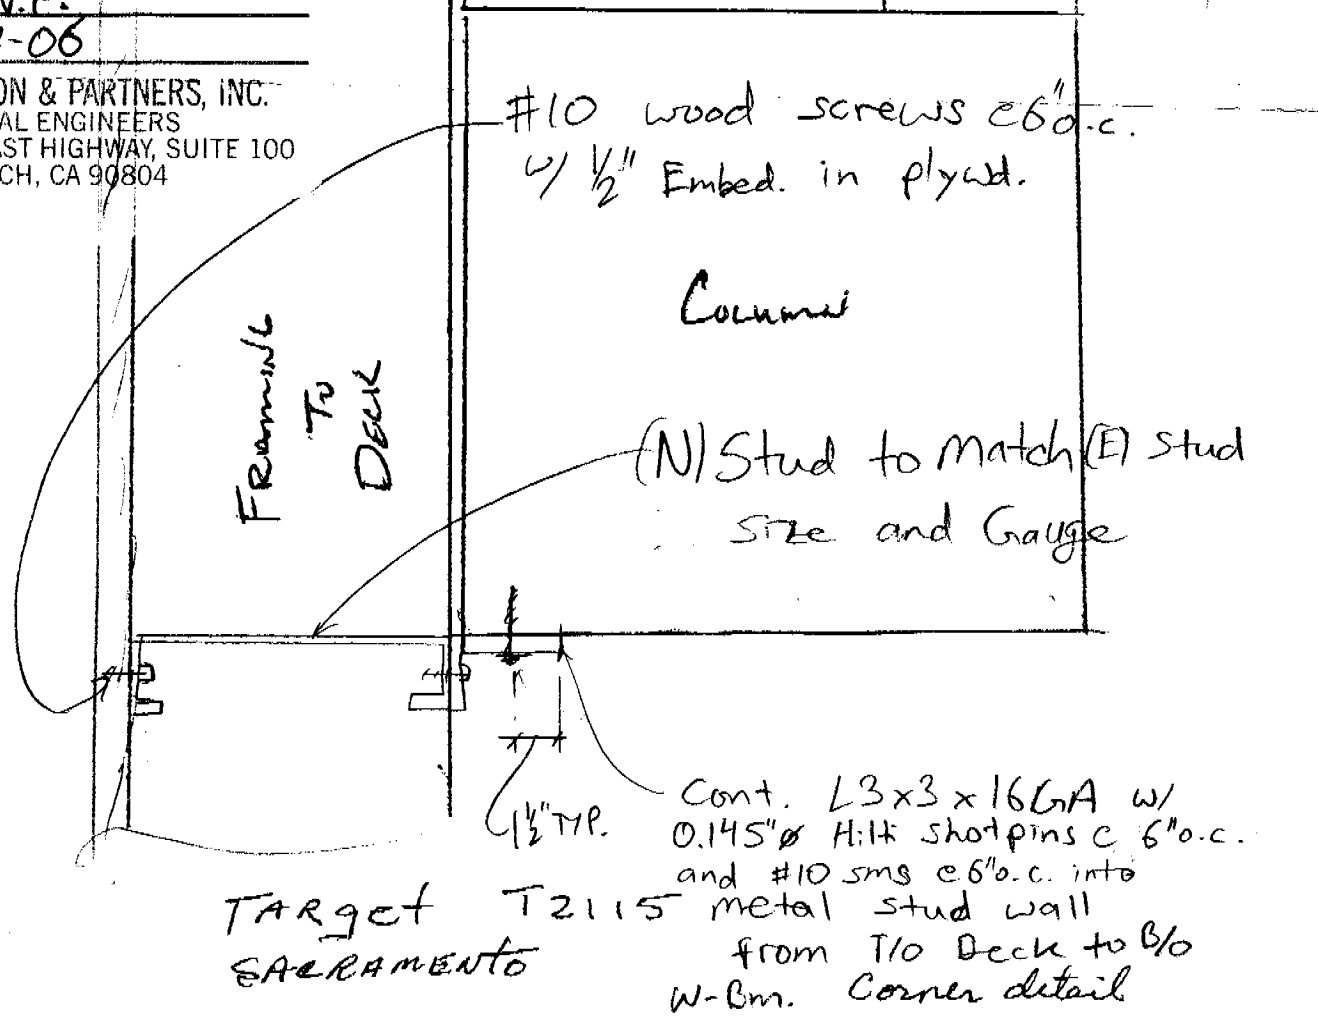 V.P.
-06
ON & PARTNERS, INC.
AL ENGINEERS
AST HIGHWAY, SUITE 100
CH, CA 90804
#10 wood screws @6" o.c.
w/ 1/2" Embed. in plywd.
Column
FRAMING
TO
DECK
(N) Stud to Match (E) Stud
size and Gauge
1 1/2" TYP.
Cont. L3x3x16GA w/
0.145"ø Hilti shotpins @ 6"o.c.
and #10 sms @6"o.c. into
metal stud wall
from T/O Deck to B/O
W-Bm. Corner detail
TARget T2115
SACRAMENTO